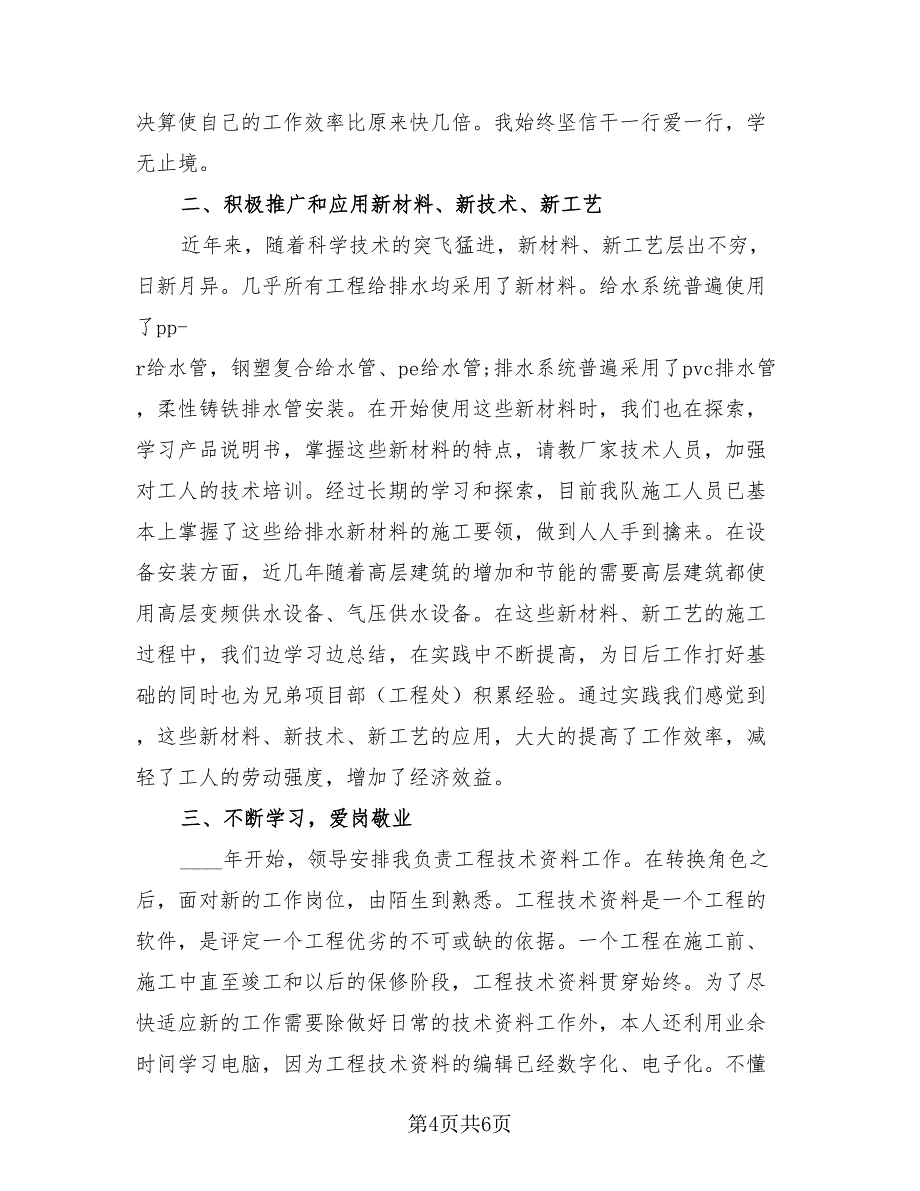 决算使自己的工作效率比原来快几倍。我始终坚信干一行爱一行，学
无止境。
二、积极推广和应用新材料、新技术、新工艺
近年来，随着科学技术的突飞猛进，新材料、新工艺层出不穷，
日新月异。几乎所有工程给排水均采用了新材料。给水系统普遍使用
了pp-
r给水管，钢塑复合给水管、pe给水管;排水系统普遍采用了pvc排水管
，柔性铸铁排水管安装。在开始使用这些新材料时，我们也在探索，
学习产品说明书，掌握这些新材料的特点，请教厂家技术人员，加强
对工人的技术培训。经过长期的学习和探索，目前我队施工人员已基
本上掌握了这些给排水新材料的施工要领，做到人人手到擒来。在设
备安装方面，近几年随着高层建筑的增加和节能的需要高层建筑都使
用高层变频供水设备、气压供水设备。在这些新材料、新工艺的施工
过程中，我们边学习边总结，在实践中不断提高，为日后工作打好基
础的同时也为兄弟项目部（工程处）积累经验。通过实践我们感觉到
，这些新材料、新技术、新工艺的应用，大大的提高了工作效率，减
轻了工人的劳动强度，增加了经济效益。
三、不断学习，爱岗敬业
____年开始，领导安排我负责工程技术资料工作。在转换角色之
后，面对新的工作岗位，由陌生到熟悉。工程技术资料是一个工程的
软件，是评定一个工程优劣的不可或缺的依据。一个工程在施工前、
施工中直至竣工和以后的保修阶段，工程技术资料贯穿始终。为了尽
快适应新的工作需要除做好日常的技术资料工作外，本人还利用业余
时间学习电脑，因为工程技术资料的编辑已经数字化、电子化。不懂
第4页共6页